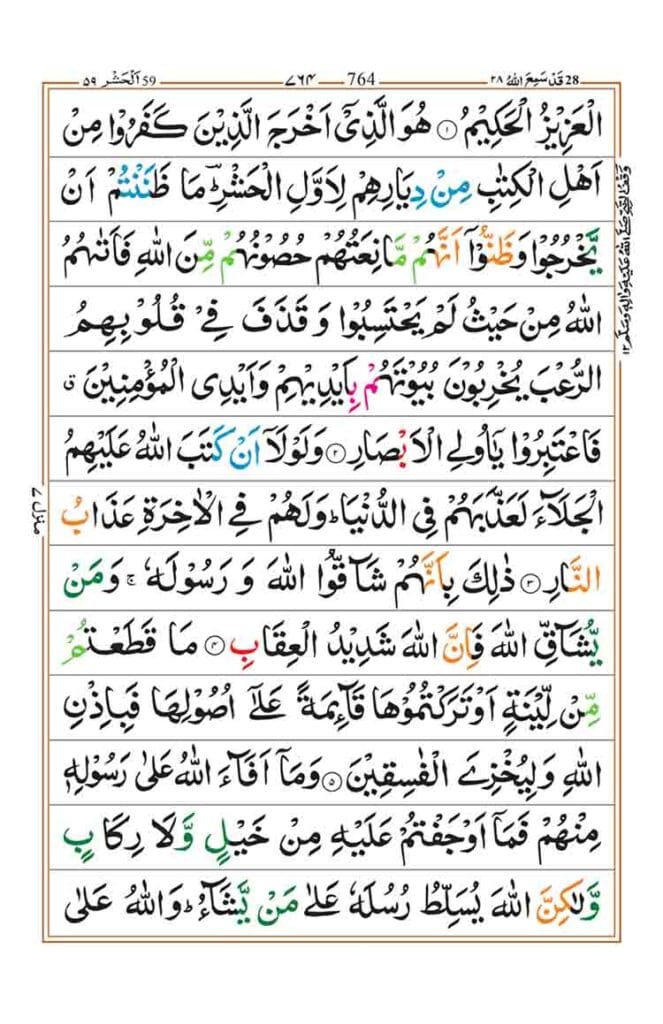 28 قَدْ سَمِعَ اللّٰهُ ۲۸
764 ۷۶۴
59 اَلْحَشْر ۵۹
الْعَزِیْزُ الْحَكِیْمُ ۝۱ هُوَ الَّذِیْۤ اَخْرَجَ الَّذِیْنَ كَفَرُوْا مِنْ
اَهْلِ الْكِتٰبِ مِنْ دِیَارِهِمْ لِاَوَّلِ الْحَشْرِ ؔؕ مَا ظَنَنْتُمْ اَنْ
یَّخْرُجُوْا وَظَنُّوْۤا اَنَّهُمْ مَّانِعَتُهُمْ حُصُوْنُهُمْ مِّنَ اللّٰهِ فَاَتٰىهُمُ
اللّٰهُ مِنْ حَیْثُ لَمْ یَحْتَسِبُوْا وَ قَذَفَ فِیْ قُلُوْبِهِمُ
الرُّعْبَ یُخْرِبُوْنَ بُیُوْتَهُمْ بِاَیْدِیْهِمْ وَاَیْدِی الْمُؤْمِنِیْنَ ۗ
فَاعْتَبِرُوْا یٰۤاُولِی الْاَبْصَارِ ۝۲ وَلَوْلَاۤ اَنْ كَتَبَ اللّٰهُ عَلَیْهِمُ
الْجَلَآءَ لَعَذَّبَهُمْ فِی الدُّنْیَا ؕ وَلَهُمْ فِی الْاٰخِرَةِ عَذَابُ
النَّارِ ۝۳ ذٰلِكَ بِاَنَّهُمْ شَآقُّوا اللّٰهَ وَ رَسُوْلَهٗ ۚ وَمَنْ
یُّشَآقِّ اللّٰهَ فَاِنَّ اللّٰهَ شَدِیْدُ الْعِقَابِ ۝۴ مَا قَطَعْتُمْ
مِّنْ لِّیْنَةٍ اَوْ تَرَكْتُمُوْهَا قَآىِٕمَةً عَلٰۤی اُصُوْلِهَا فَبِاِذْنِ
اللّٰهِ وَلِیُخْزِیَ الْفٰسِقِیْنَ ۝۵ وَمَاۤ اَفَآءَ اللّٰهُ عَلٰی رَسُوْلِهٖ
مِنْهُمْ فَمَاۤ اَوْجَفْتُمْ عَلَیْهِ مِنْ خَیْلٍ وَّلَا رِكَابٍ
وَّلٰكِنَّ اللّٰهَ یُسَلِّطُ رُسُلَهٗ عَلٰی مَنْ یَّشَآءُ ؕ وَاللّٰهُ عَلٰی
وقف النبی صلی الله علیه واٰله وسلم ۱۲
منزل ۷